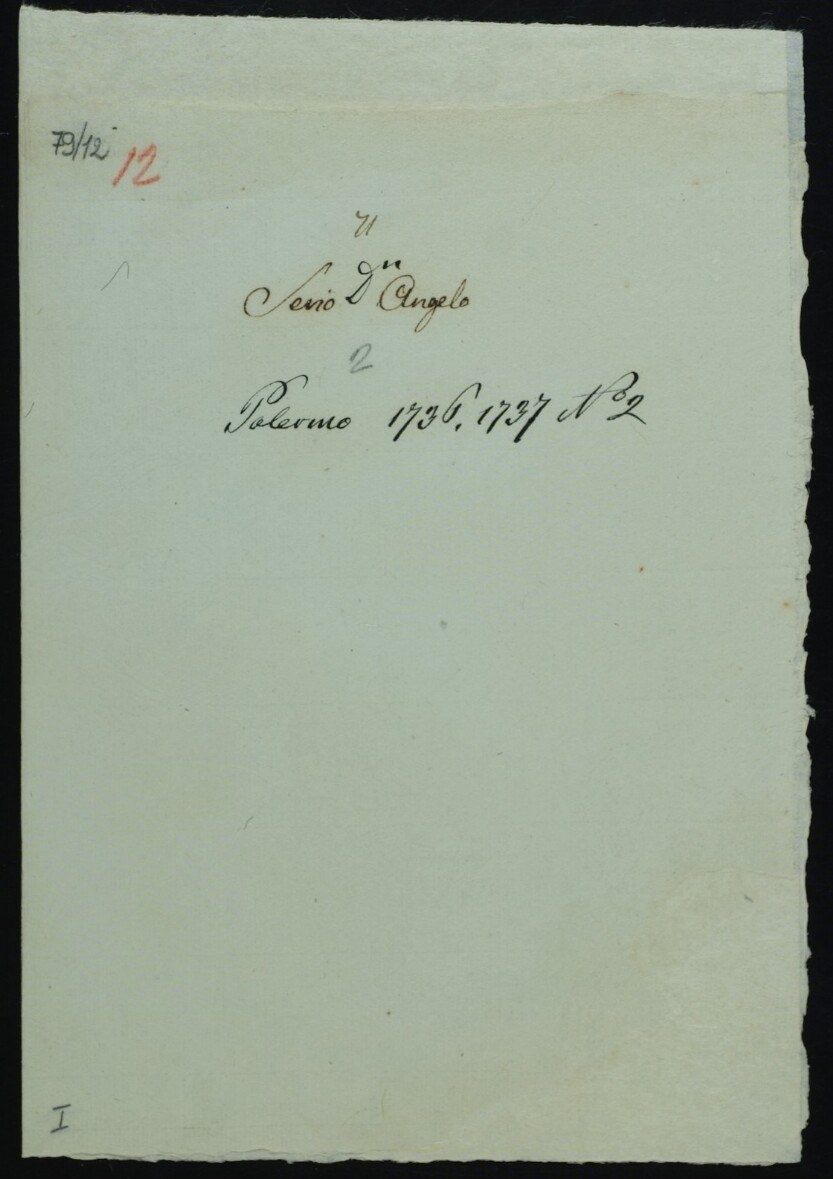 79/12 12
71
Serio Dn Angelo
2
Palermo 1736. 1737 No 2
I